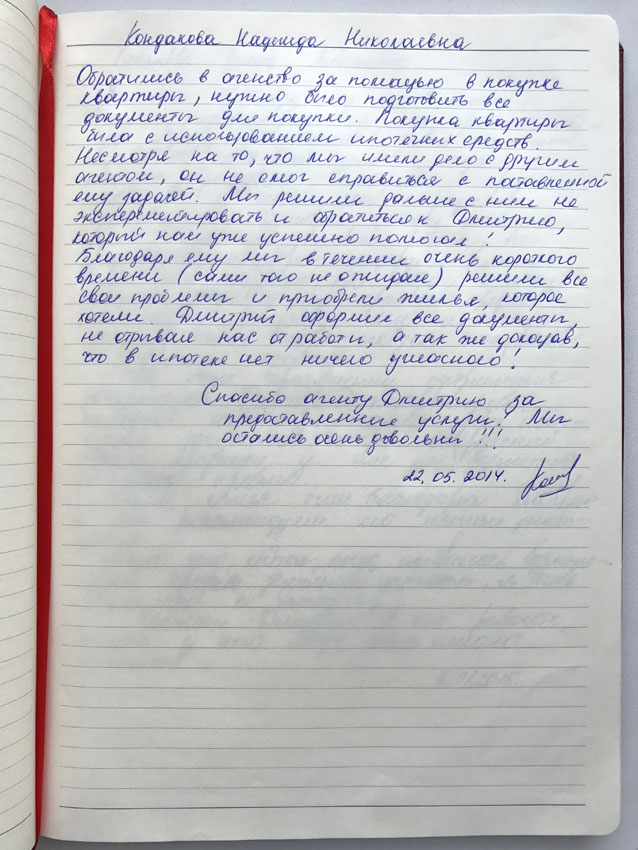 Кондакова Надежда Николаевна
Обратились в агенство за помащью в покупке
квартиры, нужно было подготовить все
документы для покупки. Покупка квартиры
была с использованием ипотечных средств.
Несмотря на то, что мы имели дело с другим
агентом, он не смог справиться с поставленной
ему задачей. Мы решили дальше с ним не
эксперементировать и обратиться к Дмитрию,
который нам уже успешно помогал!
Благодаря ему мы в течении очень короткого
времени (сами того не ожидая) решили все
свои проблемы и приобрели жилье, которое
хотели. Дмитрий оформил все документы,
не отрывая нас от работы, а так же доказав,
что в ипотеке нет ничего ужасного!
Спасибо агенту Дмитрию за
предоставленные услуги! Мы
остались очень довольны!!!
22.05.2014.